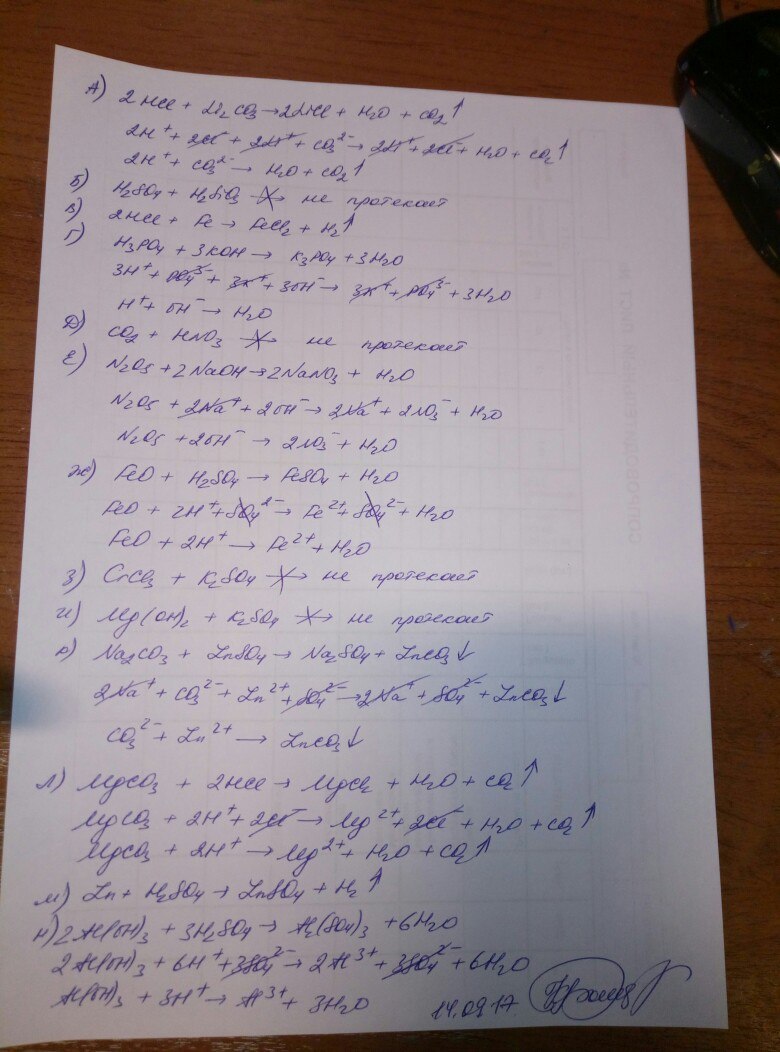 А) 2HCl + Li₂CO₃ → 2LiCl + H₂O + CO₂↑
2H⁺ + 2Cl⁻ + 2Li⁺ + CO₃²⁻ → 2Li⁺ + 2Cl⁻ + H₂O + CO₂↑
2H⁺ + CO₃²⁻ → H₂O + CO₂↑
Б) H₂SO₄ + H₂SiO₃ ↛ не протекает
В) 2HCl + Fe → FeCl₂ + H₂↑
Г) H₃PO₄ + 3KOH → K₃PO₄ + 3H₂O
3H⁺ + PO₄³⁻ + 3K⁺ + 3OH⁻ → 3K⁺ + PO₄³⁻ + 3H₂O
H⁺ + OH⁻ → H₂O
Д) CO₂ + HNO₃ ↛ не протекает
Е) N₂O₅ + 2NaOH → 2NaNO₃ + H₂O
N₂O₅ + 2Na⁺ + 2OH⁻ → 2Na⁺ + 2NO₃⁻ + H₂O
N₂O₅ + 2OH⁻ → 2NO₃⁻ + H₂O
Ж) FeO + H₂SO₄ → FeSO₄ + H₂O
FeO + 2H⁺ + SO₄²⁻ → Fe²⁺ + SO₄²⁻ + H₂O
FeO + 2H⁺ → Fe²⁺ + H₂O
З) CrCl₃ + K₂SO₄ ↛ не протекает
И) Mg(OH)₂ + K₂SO₄ ↛ не протекает
К) Na₂CO₃ + ZnSO₄ → Na₂SO₄ + ZnCO₃↓
2Na⁺ + CO₃²⁻ + Zn²⁺ + SO₄²⁻ → 2Na⁺ + SO₄²⁻ + ZnCO₃↓
CO₃²⁻ + Zn²⁺ → ZnCO₃↓
Л) MgCO₃ + 2HCl → MgCl₂ + H₂O + CO₂↑
MgCO₃ + 2H⁺ + 2Cl⁻ → Mg²⁺ + 2Cl⁻ + H₂O + CO₂↑
MgCO₃ + 2H⁺ → Mg²⁺ + H₂O + CO₂↑
М) Zn + H₂SO₄ → ZnSO₄ + H₂↑
Н) 2Al(OH)₃ + 3H₂SO₄ → Al₂(SO₄)₃ + 6H₂O
2Al(OH)₃ + 6H⁺ + 3SO₄²⁻ → 2Al³⁺ + 3SO₄²⁻ + 6H₂O
Al(OH)₃ + 3H⁺ → Al³⁺ + 3H₂O
14.09.17